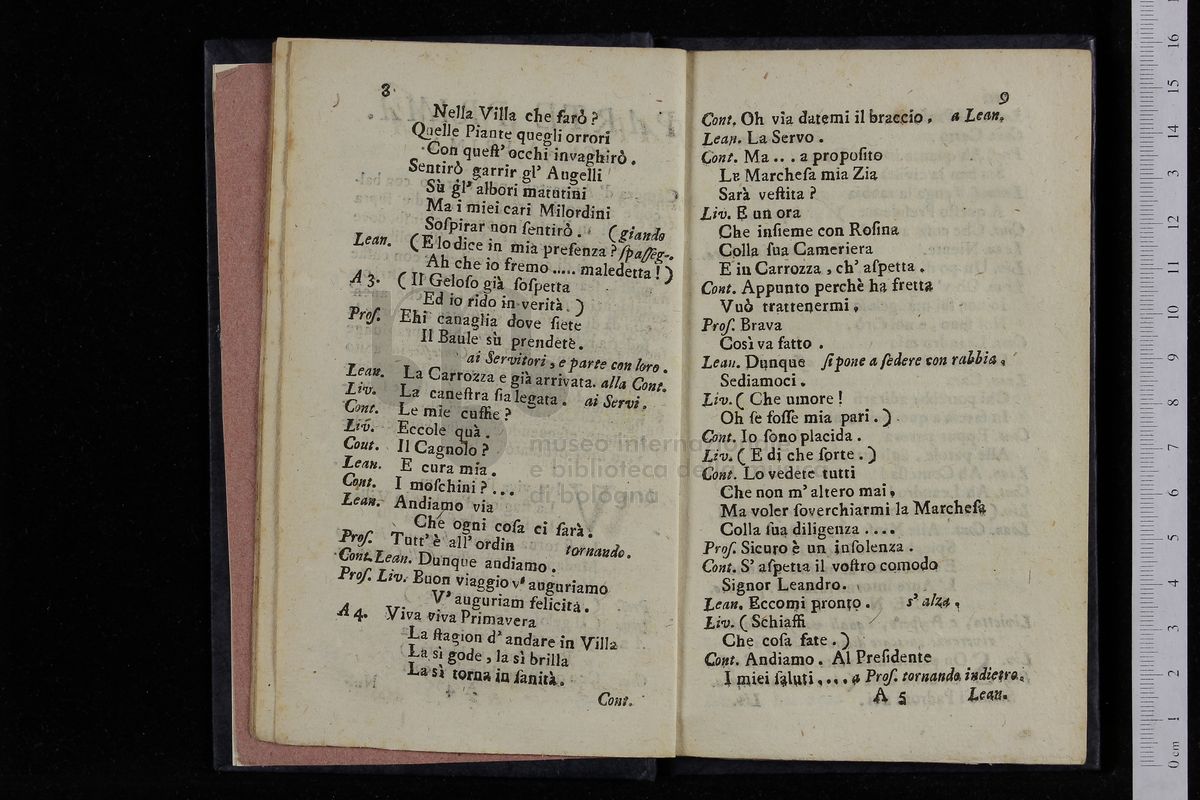 8
Nella Villa che farò ?
Quelle Piante quegli orrori
Con queſt' occhi invaghirò .
Sentirò garrir gl' Augelli
Sù gl' albori matutini
Ma i miei cari Milordini
Soſpirar non ſentirò . (giando
Lean. ( E lo dice in mia preſenza ? ſpaſſeg-
Ah che io fremo ..... maledetta ! )
A 3. ( Il Geloſo già ſoſpetta
Ed io rido in verità . )
Proſ. Ehi canaglia dove ſiete
Il Baule sù prendetè .
ai Servitori , e parte con loro .
Lean. La Carrozza e già arrivata. alla Cont.
Liv. La caneſtra ſia legata . ai Servi .
Cont. Le mie cuffie ?
Liv. Eccole quà .
Cout. Il Cagnolo ?
Lean. E cura mia .
Cont. I moſchini ? ...
Lean. Andiamo via
Che ogni coſa ci ſarà .
Proſ. Tutt' è all' ordin tornando.
Cont. Lean. Dunque andiamo .
Proſ. Liv. Buon viaggio v' auguriamo
V' auguriam felicità .
A 4. Viva viva Primavera
La ſtagion d' andare in Villa
La sì gode , la sì brilla
La sì torna in ſanità .
Cont.
9
Cont. Oh via datemi il braccio . a Lean.
Lean. La Servo .
Cont. Ma ... a propoſito
La Marcheſa mia Zia
Sarà veſtita ?
Liv. E un ora
Che inſieme con Roſina
Colla ſua Cameriera
E in Carrozza , ch' aſpetta .
Cont. Appunto perchè ha fretta
Vuò trattenermi .
Proſ. Brava
Così va fatto .
Lean. Dunque ſi pone a ſedere con rabbia .
Sediamoci .
Liv. ( Che umore !
Oh ſe foſſe mia pari . )
Cont. Io ſono placida .
Liv. ( E di che ſorte . )
Cont. Lo vedete tutti
Che non m' altero mai ,
Ma voler ſoverchiarmi la Marcheſa
Colla ſua diligenza ....
Proſ. Sicuro è un inſolenza .
Cont. S' aſpetta il voſtro comodo
Signor Leandro .
Lean. Eccomi pronto . s' alza .
Liv. ( Schiaffi
Che coſa fate . )
Cont. Andiamo . Al Preſidente
I miei ſaluti .... a Proſ. tornando indietro.
A 5 Lean.
museo internazionale
e biblioteca della musica
di bologna